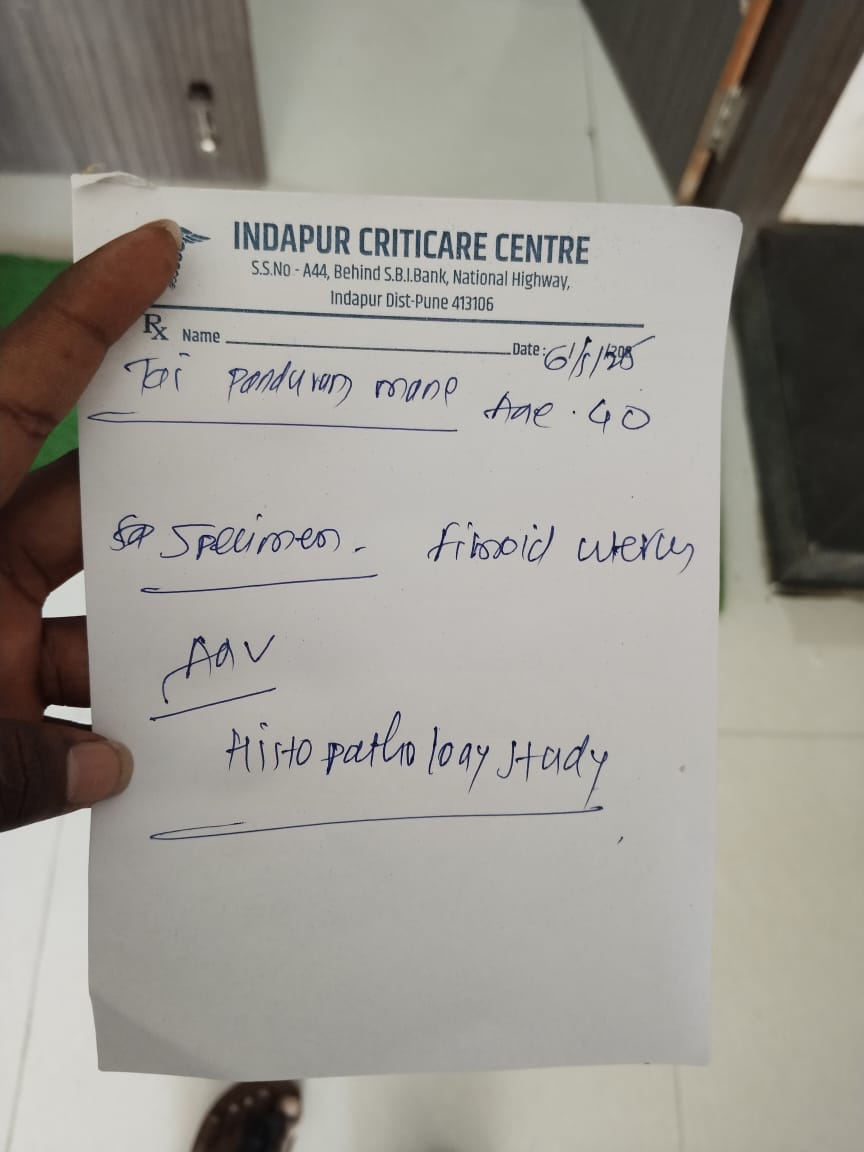 INDAPUR CRITICARE CENTRE
S.S.No - A44, Behind S.B.I.Bank, National Highway,
Indapur Dist-Pune 413106
Rx Name
Date: 6/5/25
Tai Pandurang mane Age. 40
Specimen - fibroid uterus
Adv
Histopathology study